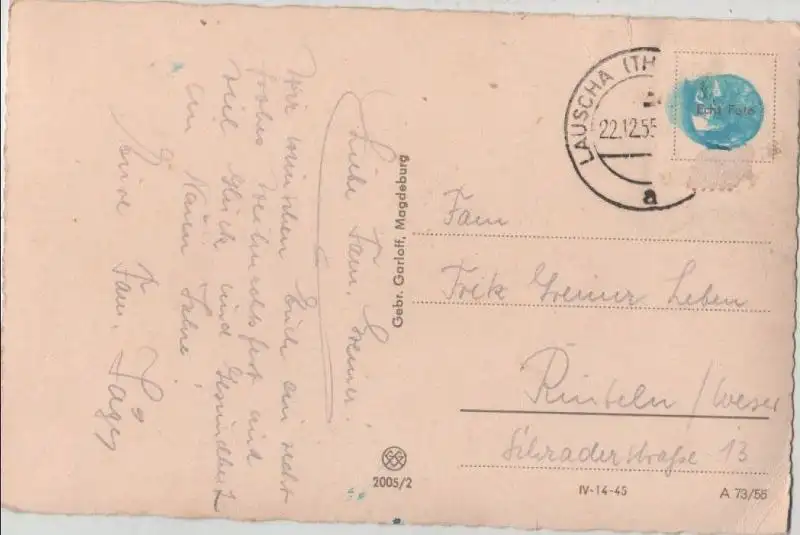 Liebe Fam. Greiner!
Wir wünschen Euch ein recht
frohes Weihnachtsfest und
viel Glück und Gesundheit
im Neuen Jahre!
Eure Fam.
Gebr. Garloff, Magdeburg
2005/2
LAUSCHA (TH
22.12.55
a
Echt Foto
Fam
Fritz Greiner Leben
Rinteln / Weser
Schraderstraße 13
IV-14-45
A 73/55